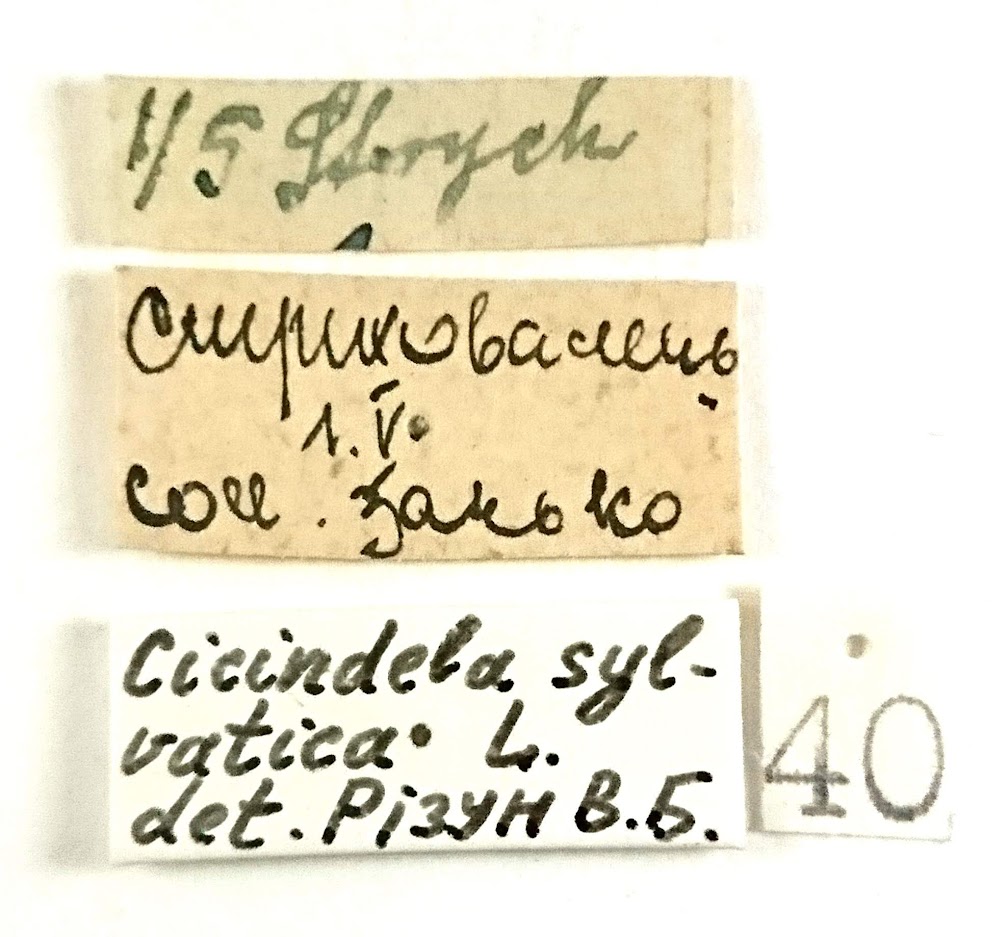 1/5 Strych
Стриховалець
1.V.
соч. Занько
Cicindela syl-
vatica L.
det. Різун В.Б.
40